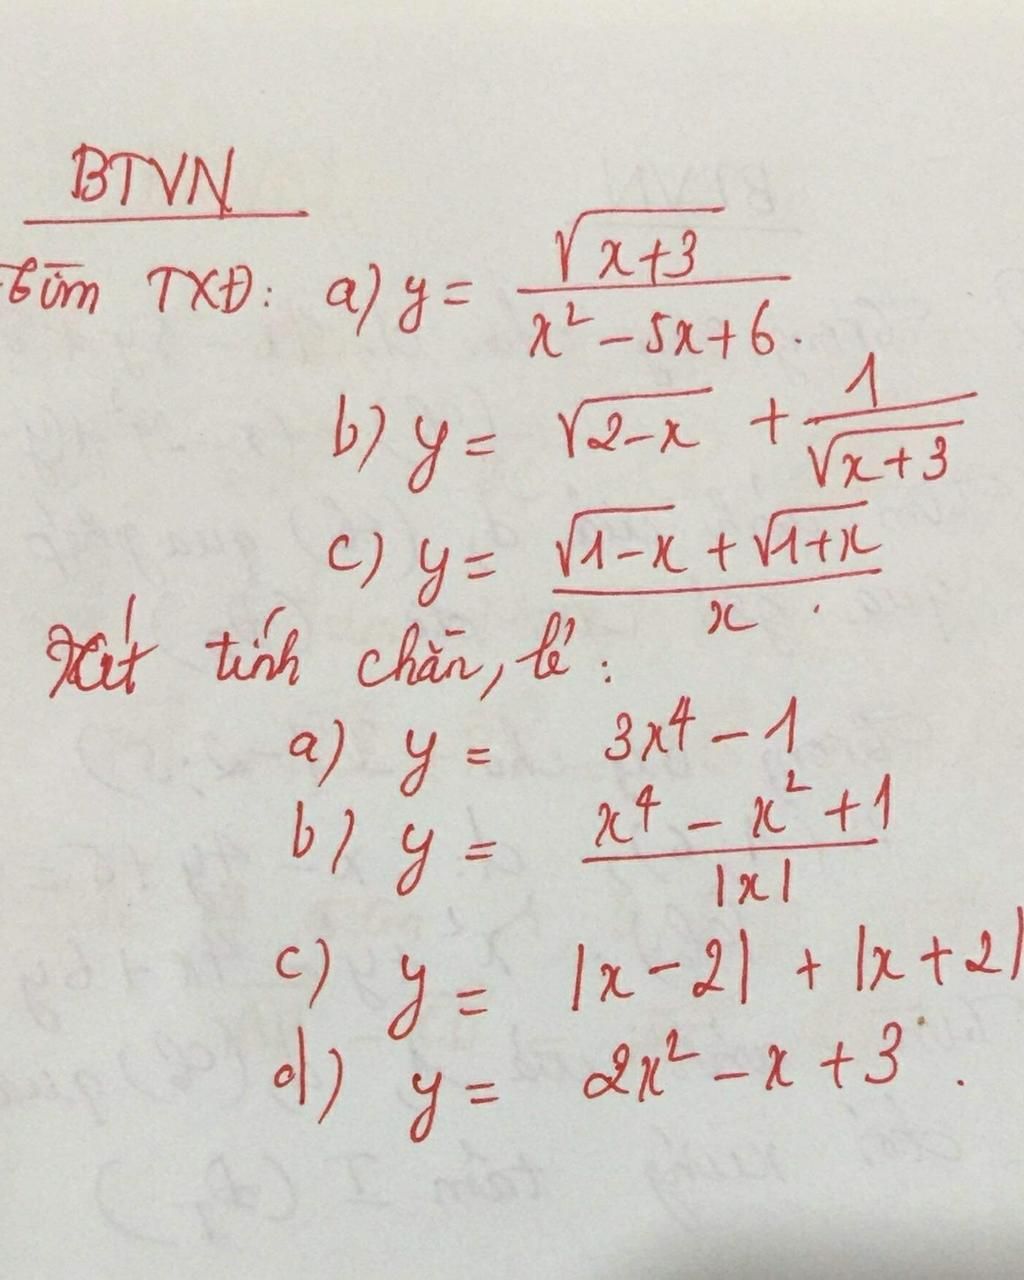 BTVN
Tìm TXĐ: a) y = √(x+3) / (x² - 5x + 6).
b) y = √(2-x) + 1/√(x+3)
c) y = (√(1-x) + √(1+x)) / x.
Xét tính chẵn, lẻ:
a) y = 3x⁴ - 1
b) y = (x⁴ - x² + 1) / |x|
c) y = |x - 2| + |x + 2|
d) y = 2x² - x + 3.